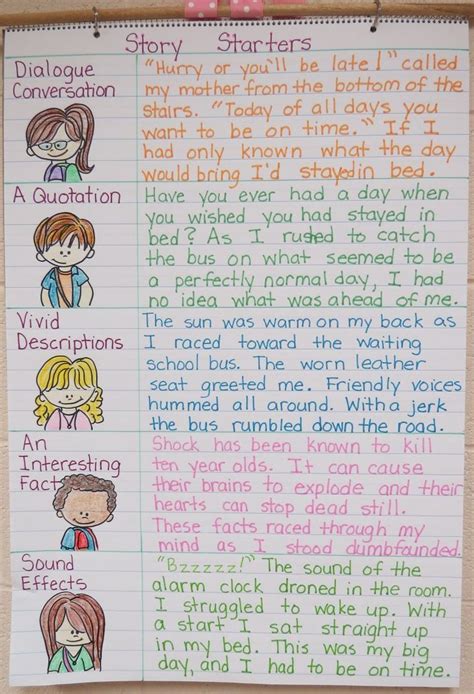 Story Starters
Dialogue
Conversation
"Hurry or you'll be late!" called
my mother from the bottom of the
stairs. "Today of all days you
want to be on time." If I
had only known what the day
would bring I'd stayed in bed.
A Quotation
Have you ever had a day when
you wished you had stayed in
bed? As I rushed to catch
the bus on what seemed to be
a perfectly normal day, I had
no idea what was ahead of me.
Vivid
Descriptions
The sun was warm on my back as
I raced toward the waiting
school bus. The worn leather
seat greeted me. Friendly voices
hummed all around. With a jerk
the bus rumbled down the road.
An
Interesting
Fact
Shock has been known to kill
ten year olds. It can cause
their brains to explode and their
hearts can stop dead still.
These facts raced through my
mind as I stood dumbfounded.
Sound
Effects
"Bzzzzz!" The sound of the
alarm clock droned in the room.
I struggled to wake up. With
a start I sat straight up
in my bed. This was my big
day, and I had to be on time.